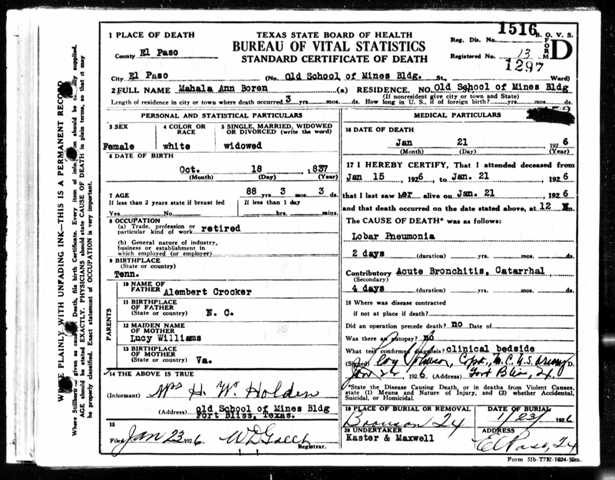 1516
TEXAS STATE BOARD OF HEALTH
BUREAU OF VITAL STATISTICS
STANDARD CERTIFICATE OF DEATH
B. O. V. S.
FORM D
Reg. Dis. No.
Registered No. 13
1297
1 PLACE OF DEATH
County El Paso
City El Paso (No. Old School of Mines Bldg. St., Ward)
2 FULL NAME Mahala Ann Boren (a) RESIDENCE. NO. Old School of Mines Bldg
(If nonresident give city or town and State)
Length of residence in city or town where death occurred 3 yrs. mos. ds. How long in U. S., if of foreign birth? yrs. mos. ds.
PERSONAL AND STATISTICAL PARTICULARS
3 SEX
Female
4 COLOR OR RACE
white
5 SINGLE, MARRIED, WIDOWED OR DIVORCED (write the word)
widowed
6 DATE OF BIRTH
Oct. 18 1837
(Month) (Day) (Year)
7 AGE
If less than 2 years state if breast fed
Yes No
88 yrs. 3 mos. 3 ds.
If less than 1 day
hrs. mins.
8 OCCUPATION
(a) Trade, profession or particular kind of work retired
(b) General nature of industry, business or establishment in which employed (or employer)
9 BIRTHPLACE
(State or country)
Tenn.
PARENTS
10 NAME OF FATHER Alembert Crocker
11 BIRTHPLACE OF FATHER
(State or country) N. C.
12 MAIDEN NAME OF MOTHER
Lucy Williams
13 BIRTHPLACE OF MOTHER
(State or country) Va.
14 THE ABOVE IS TRUE
(Informant) Mrs H. W. Holden
(Address) old School of Mines Bldg
Fort Bliss, Texas.
15
Filed Jan 23 1926
Registrar.
MEDICAL PARTICULARS
16 DATE OF DEATH
Jan 21 1926
(Month) (Day) (Year)
17 I HEREBY CERTIFY, That I attended deceased from
Jan 15 1926 to Jan. 21 1926
that I last saw her alive on Jan. 21 1926
and that death occurred on the date stated above, at 12 M.
The CAUSE OF DEATH* was as follows:
Lobar Pneumonia
2 days (duration) yrs. mos. ds.
Contributory Acute Bronchitis, Catarrhal
(Secondary)
4 days (duration) yrs. mos. ds.
18 Where was disease contracted
if not at place of death?
Did an operation precede death? no Date of
Was there an autopsy? no
What test confirmed diagnosis? clinical bedside
(Signed) M. D.
1926 (Address) Fort Bliss, Tex
*State the Disease Causing Death, or in deaths from Violent Causes, state (1) Means and Nature of Injury, and (2) whether Accidental, Suicidal, or Homicidal.
19 PLACE OF BURIAL OR REMOVAL
DATE OF BURIAL
1926
20 UNDERTAKER
Kaster & Maxwell
ADDRESS
El Paso, Tx